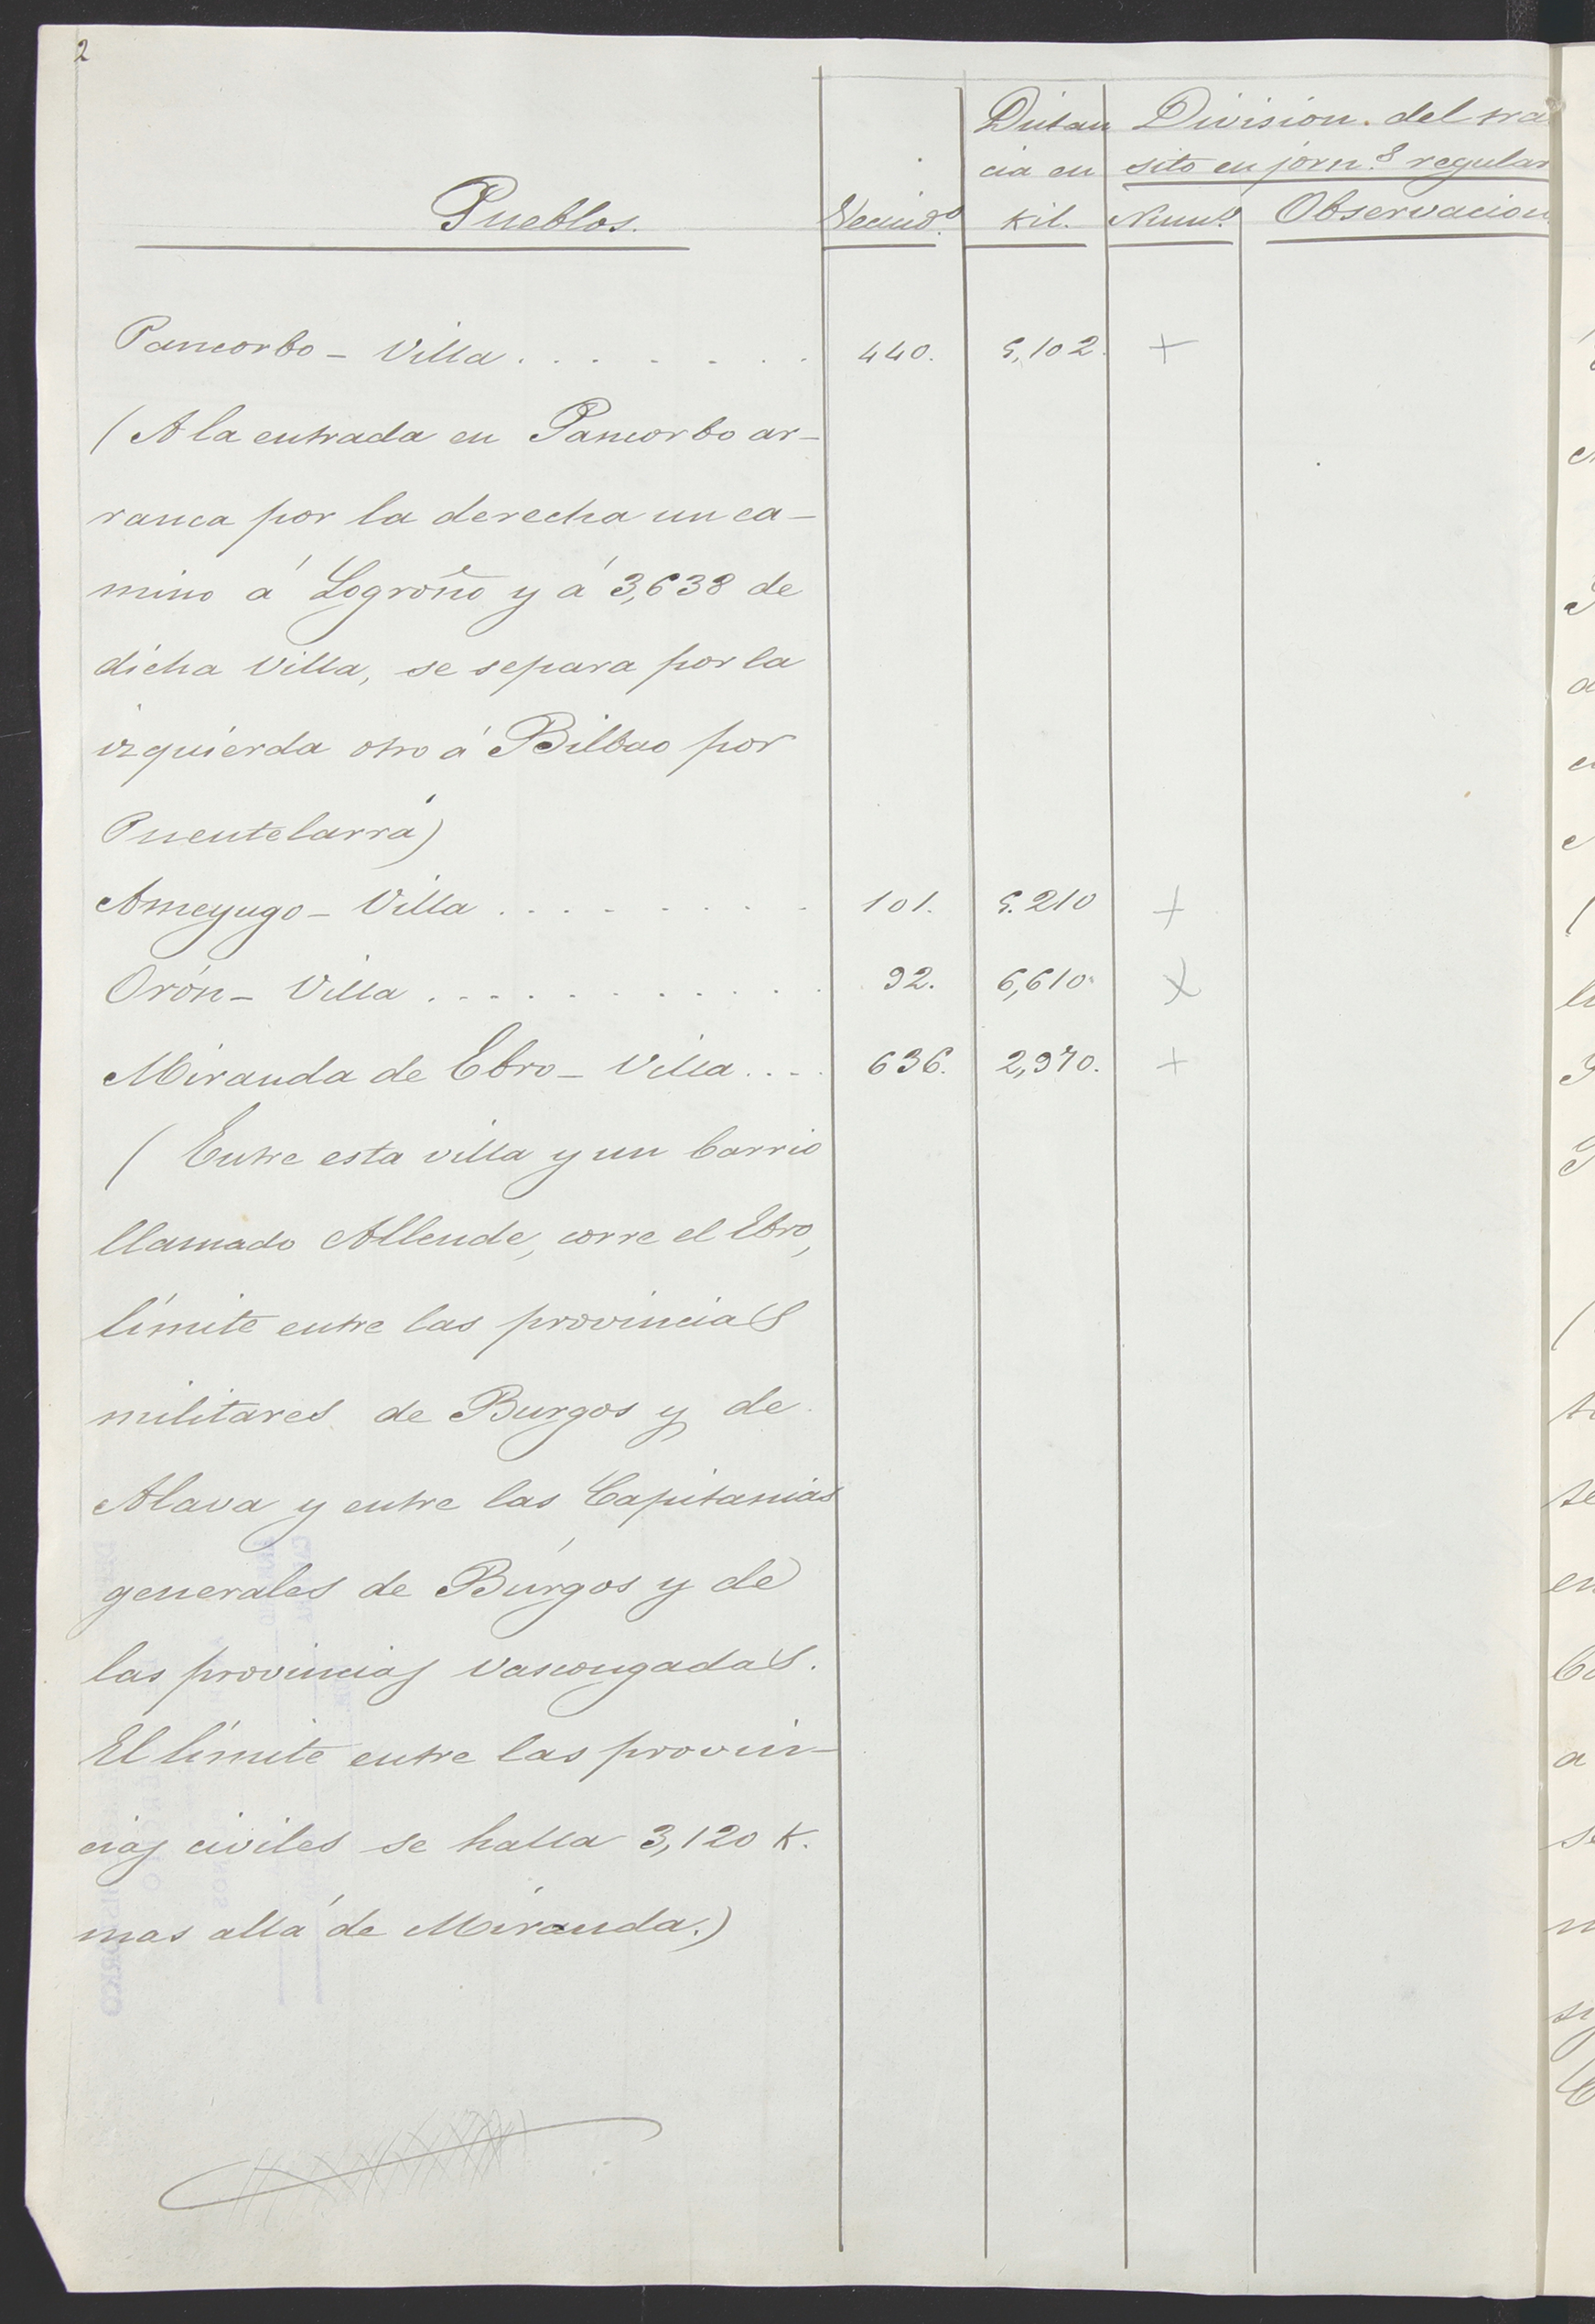 2
Distan División del tra
cia en sito en jorn.s regular
Pueblos. Vecind.o kil. Num.o Observacion
Pancorbo - Villa . . . . . . . 440. 5,102. +
(A la entrada en Pancorbo ar-
ranca por la derecha un ca-
mino á Logroño y á 3,638 de
dicha Villa, se separa por la
izquierda otro á Bilbao por
Puentelarrá)
Ameyugo - Villa . . . . . . . . 101. 5.210 +
Orón - Villa . . . . . . . . . . . . 92. 6,610. x
Miranda de Ebro - Villa . . . . 636. 2,970. +
( Entre esta villa y un barrio
llamado Allende, corre el Ebro,
límite entre las provincias
militares de Burgos y de
Alava y entre las Capitanias
generales de Búrgos y de
las provincias vascongadas.
El límite entre las provin-
cias civiles se halla 3,120 K.
mas allá de Miranda.)